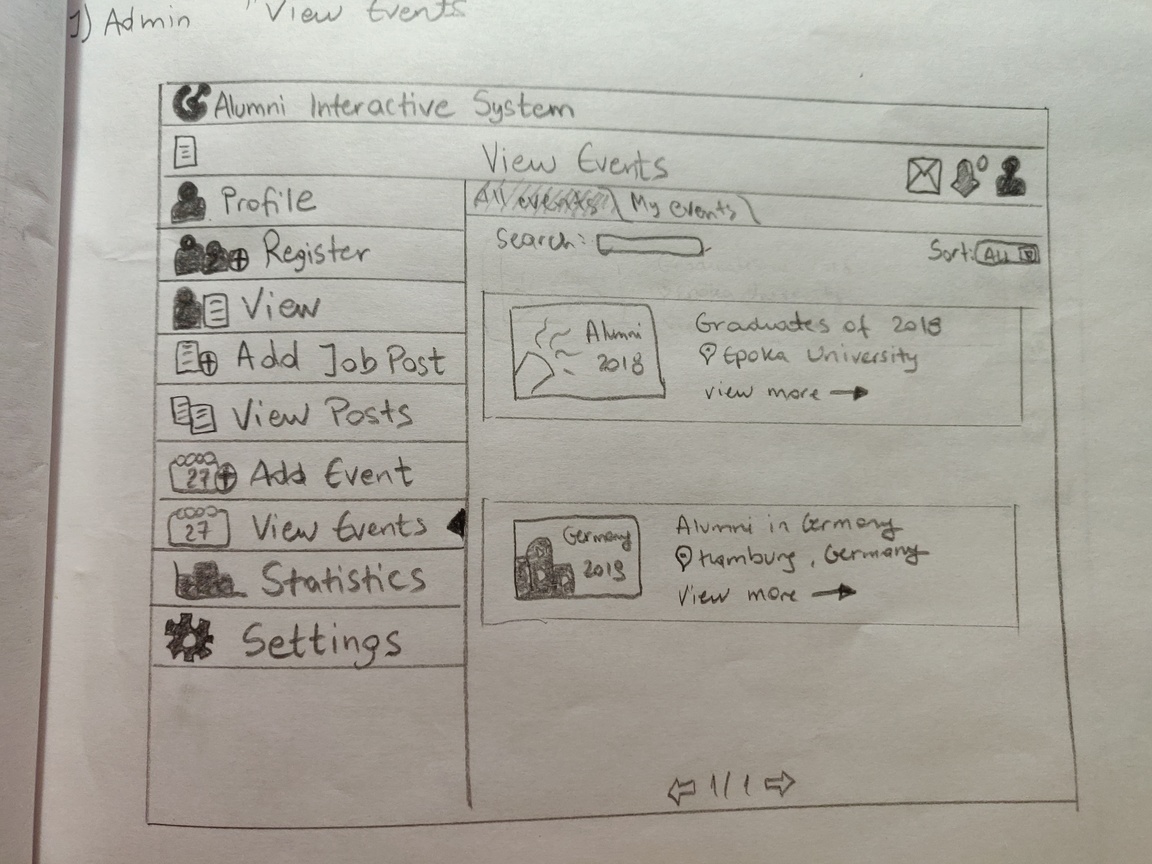 1) Admin "View Events
Alumni Interactive System
View Events
Profile
Register
View
Add Job Post
View Posts
27 Add Event
27 View Events
Statistics
Settings
All events My events
Search: Sort: All
Alumni
2018
Graduates of 2018
Epoka University
view more
Germany
2019
Alumni in Germany
Hamburg, Germany
View more
1/1